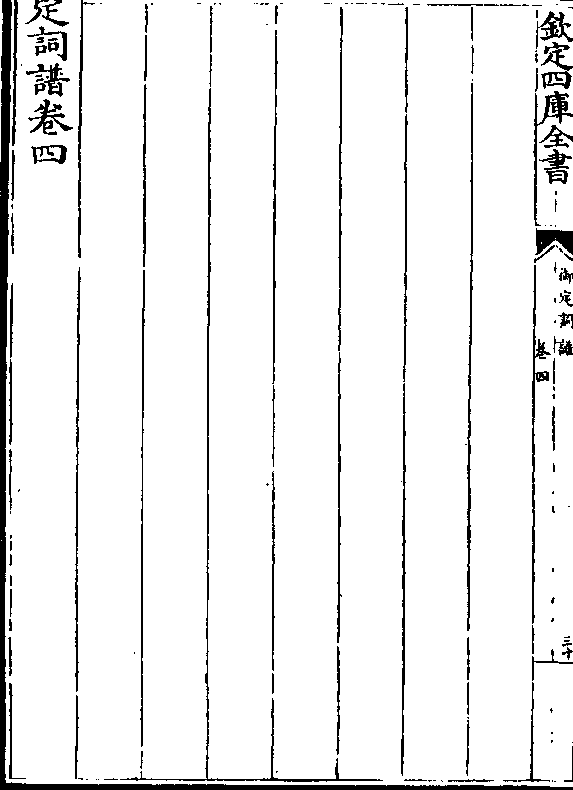 欽定四庫全書
御定詞譜
卷四
三十
定詞譜卷四